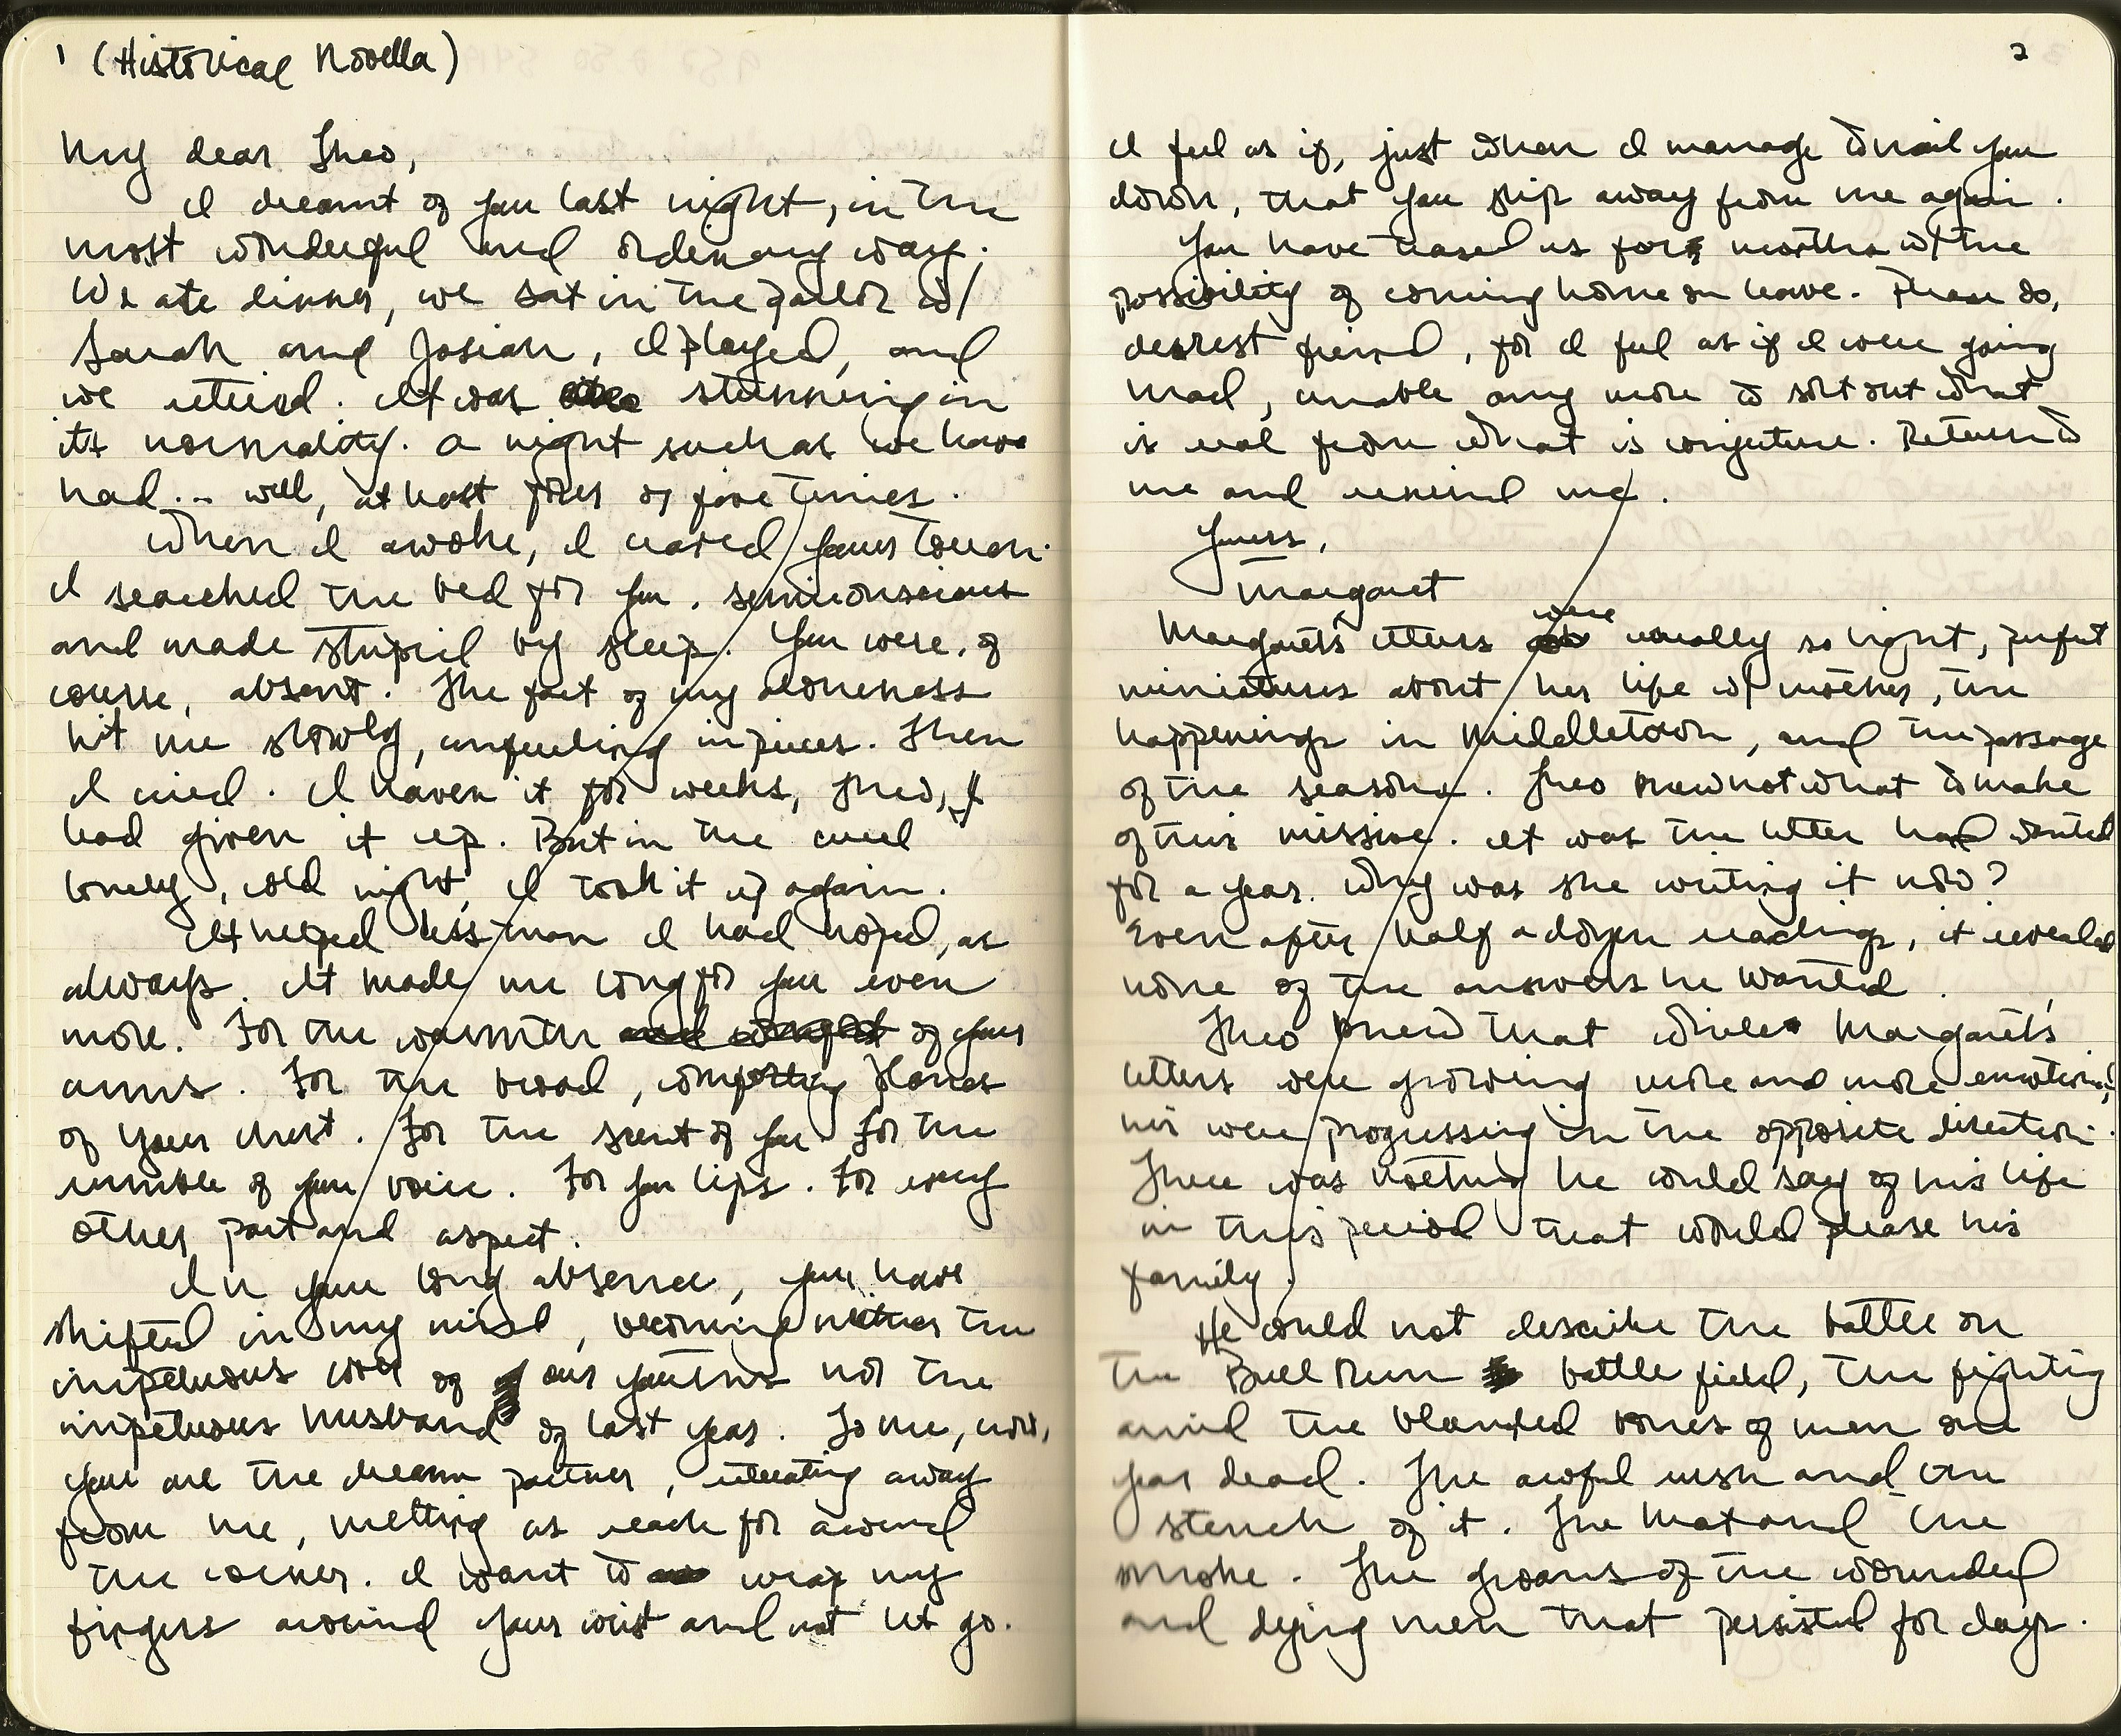 1 (Historical Novella)
My dear Theo,
I dreamt of you last night, in the
most wonderful and ordinary way.
We ate dinner, we sat in the parlor w/
Sarah and Josiah, I played, and
we retired. It was stunning in
its normality. A night such as we have
had... well, at least four or five times.
When I awoke, I craved your touch.
I searched the bed for you, semiconscious
and made stupid by sleep. You were, of
course, absent. The fact of my aloneness
hit me slowly, unfurling in pieces. Then
I cried. I haven't for weeks, Theo, I
had given it up. But in the cruel
lonely, cold night, I took it up again.
It helped less than I had hoped, as
always. It made me long for you even
more. For the warmth and weight of your
arms. For the broad, comforting planes
of your chest. For the scent of you. For the
rumble of your voice. For your lips. For every
other part and aspect.
In your long absence, you have
shifted in my mind, becoming neither the
impetuous lover of our youths nor the
impetuous husband of last year. To me, now,
you are the dream partner, retreating away
from me, melting as reach for around
the corner. I want to wrap my
fingers around your wrist and not let go.
2
I feel as if, just when I manage to nail you
down, that you slip away from me again.
You have teased us for months w/ the
possibility of coming home on leave. Please do,
dearest friend, for I feel as if I were going
mad, unable any more to sort out what
is real from what is conjecture. Return to
me and remind me.
Yours,
Margaret
were
Margaret's letters usually so light, perfect
miniatures about her life w/ mother, the
happenings in Middletown, and the passage
of the seasons. Theo knew not what to make
of this missive. It was the letter had wanted
for a year. Why was she writing it now?
Even after half a dozen readings, it revealed
none of the answers he wanted.
Theo knew that while Margaret's
letters were growing more and more emotional,
his were progressing in the opposite direction.
There was nothing he could say of his life
in this period that would please his
family.
He could not describe the battle on
the Bull Run battle field, the fighting
amid the blanched bones of men one
year dead. The awful rush and the
stench of it. The heat and the
smoke. The groans of the wounded
and dying men that persisted for days.